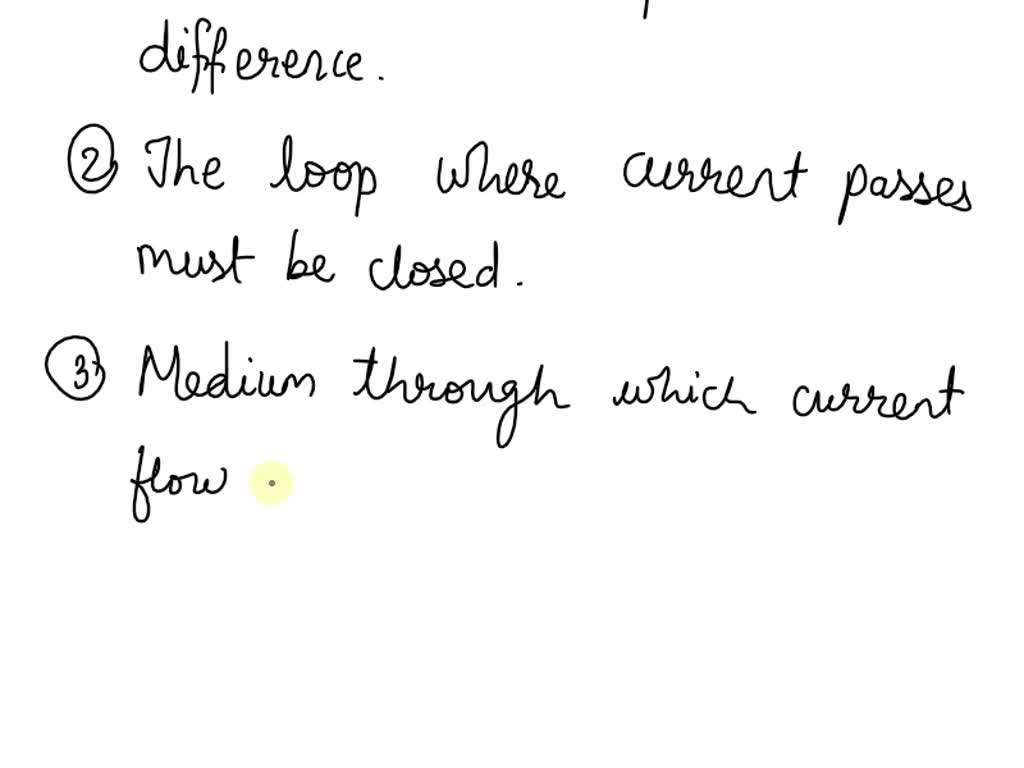 difference.
② The loop where current passes
must be closed.
③ Medium through which current
flow